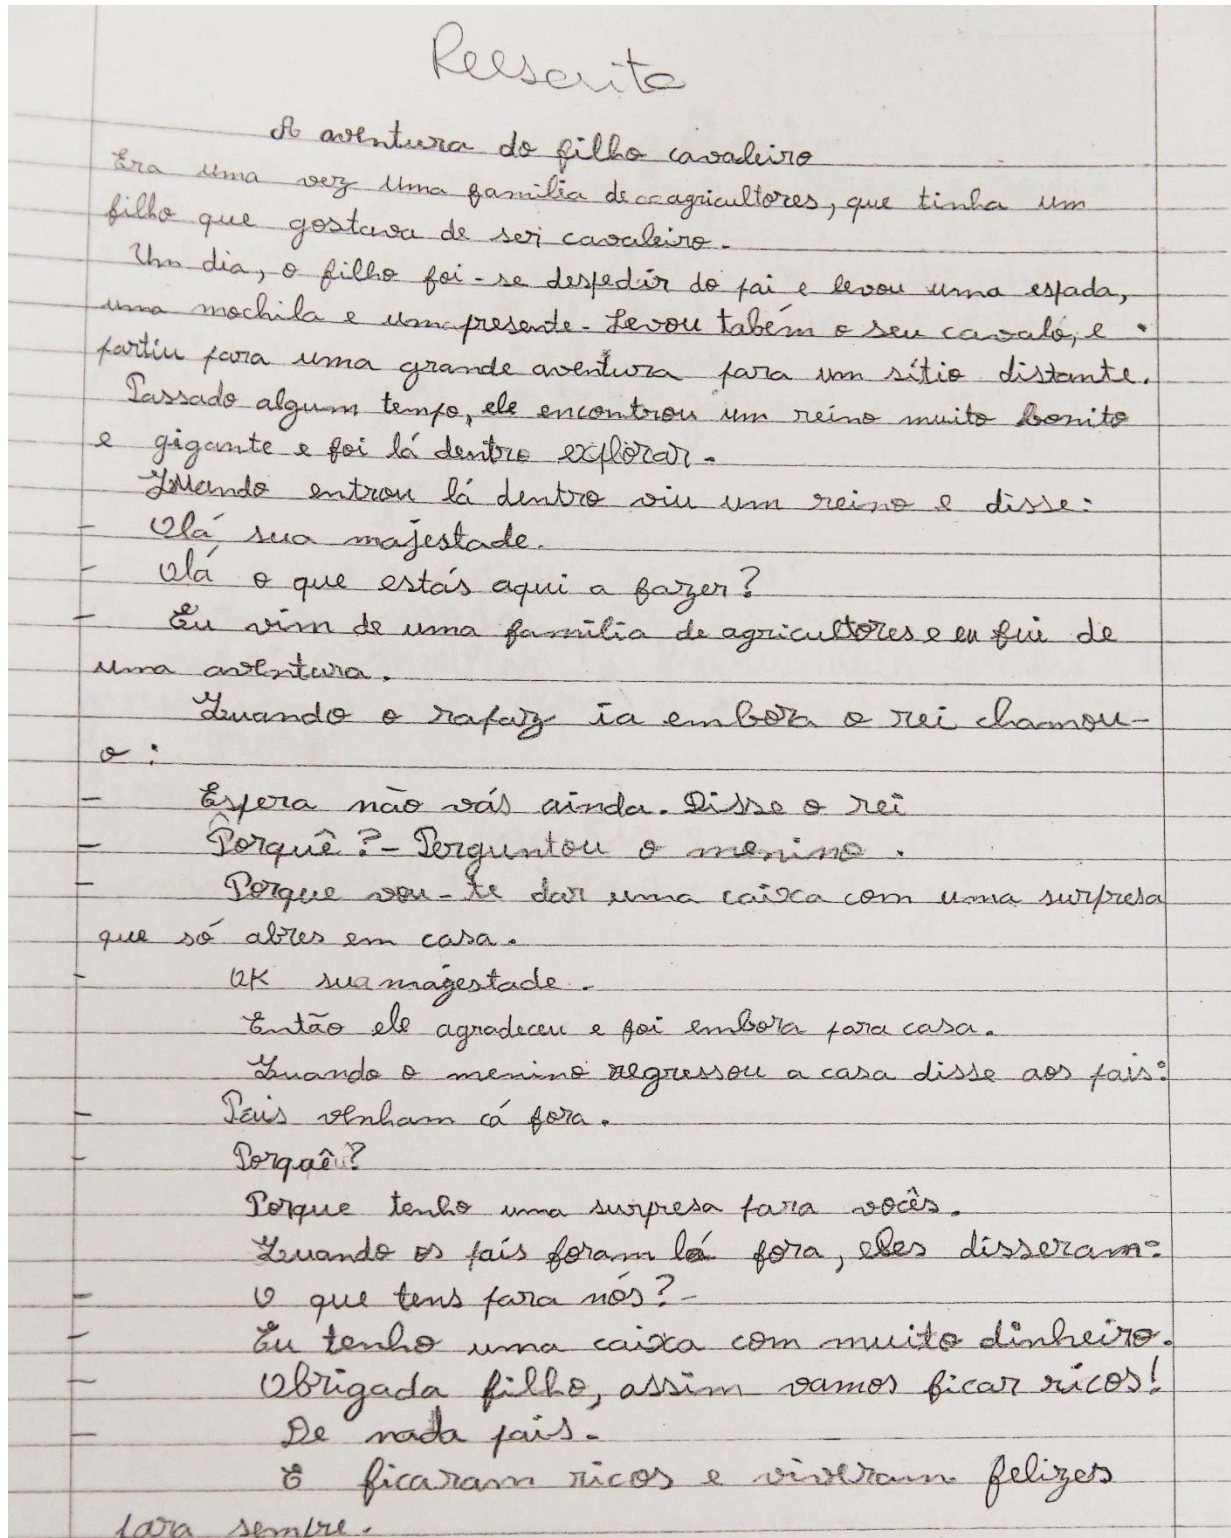 Reescrita
A aventura do filho cavaleiro
Era uma vez uma família de agricultores, que tinha um
filho que gostava de ser cavaleiro.
Um dia, o filho foi-se despedir do pai e levou uma espada,
uma mochila e um presente. Levou tabém o seu cavalo, e
partiu para uma grande aventura para um sítio distante.
Passado algum tempo, ele encontrou um reino muito bonito
e gigante e foi lá dentro explorar.
Quando entrou lá dentro viu um reino e disse:
- Olá sua majestade.
- Olá o que estás aqui a fazer?
- Eu vim de uma família de agricultores e eu fui de
uma aventura.
Quando o rapaz ia embora o rei chamou-
o:
- Espera não vás ainda. Disse o rei
- Porquê? - Perguntou o menino.
- Porque vou-te dar uma caixa com uma surpresa
que só abres em casa.
- OK sua magestade.
Então ele agradeceu e foi embora para casa.
Quando o menino regressou a casa disse aos pais:
- Pais venham cá fora.
- Porquê?
Porque tenho uma surpresa para vocês.
Quando os pais foram lá fora, eles disseram:
- O que tens para nós? -
- Eu tenho uma caixa com muito dinheiro.
- Obrigada filho, assim vamos ficar ricos!
- De nada pais.
E ficaram ricos e viveram felizes
para sempre.